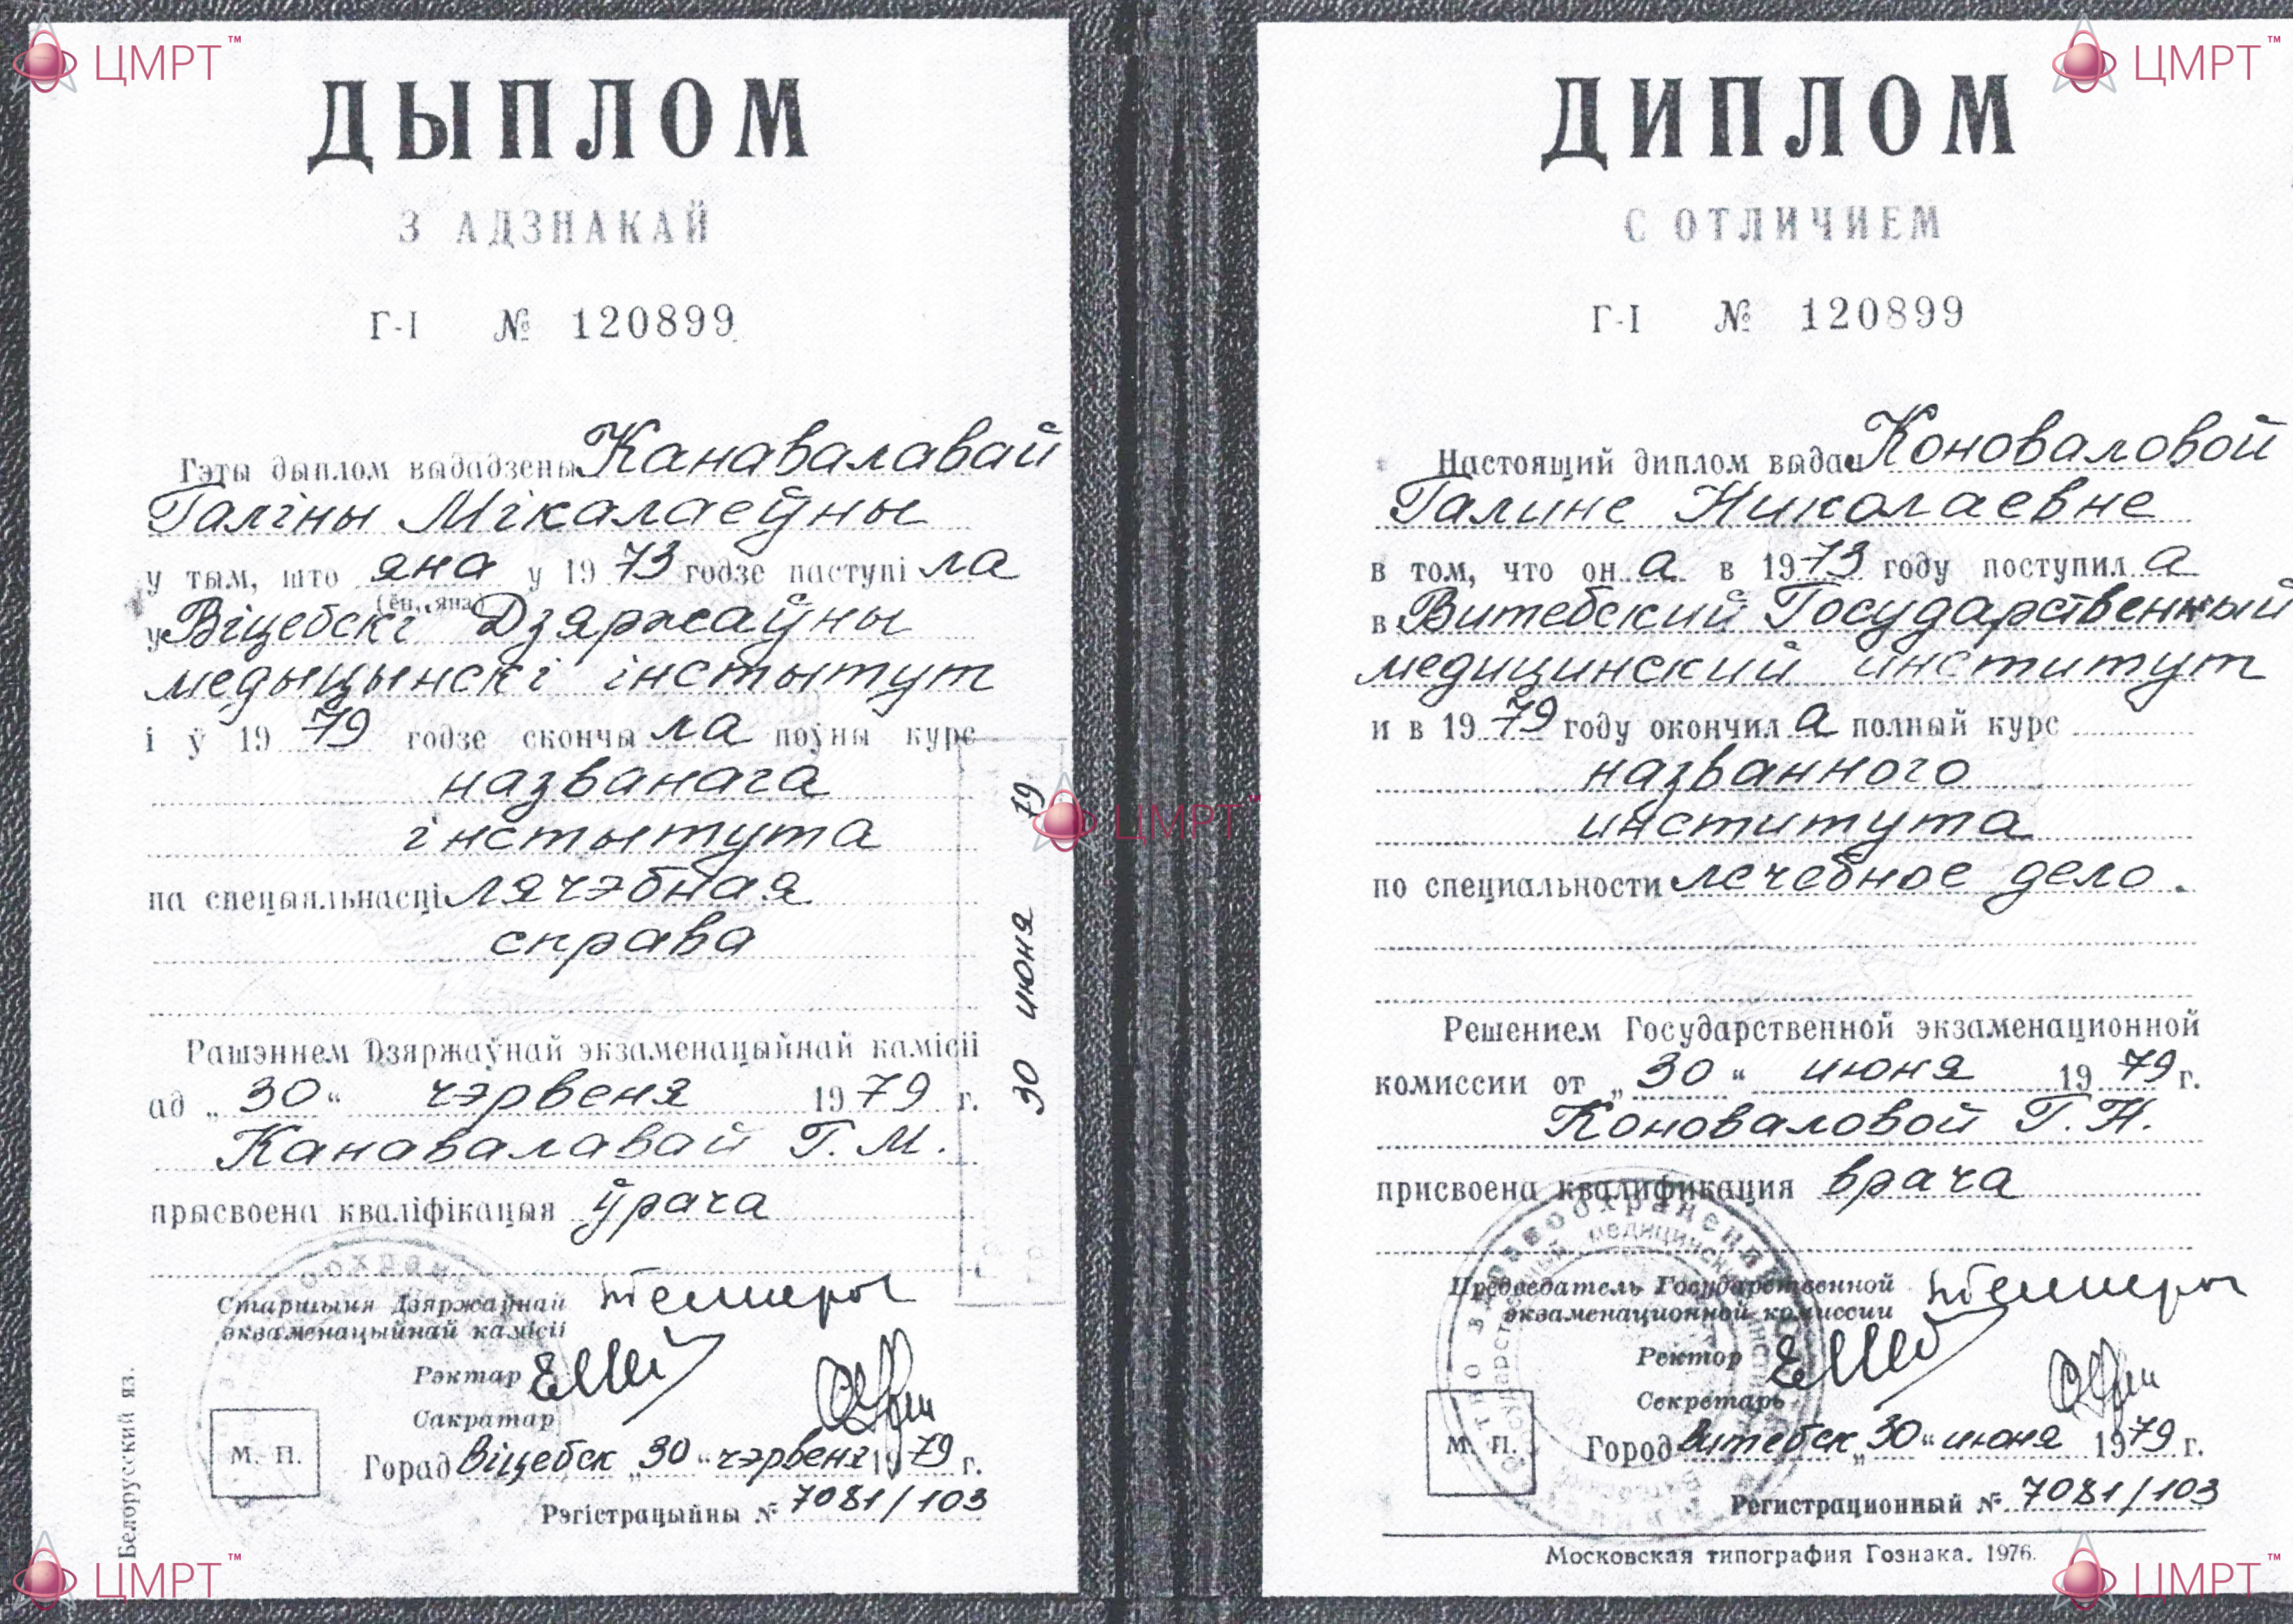 ЦМРТ™
ДЫПЛОМ
З АДЗНАКАЙ
Г-I № 120899
Гэты дыплом выдадзены Канавалавай
Галіны Мікалаеўны
у тым, што яна у 1973 годзе паступі ла
(ён, яна)
у Віцебскі Дзяржаўны
медыцынскі інстытут
і ў 1979 годзе скончы ла поўны курс
названага
інстытута
па спецыяльнасці лячэбная
справа
Рашэннем Дзяржаўнай экзаменацыйнай камісіі
ад „30“ чэрвеня 1979 г.
Канавалавай Г. М.
прысвоена кваліфікацыя ўрача
Старшыня Дзяржаўнай
экзаменацыйнай камісіі
Рэктар
Сакратар
М. П.
Горад Віцебск „30“ чэрвеня 1979 г.
Рэгістрацыйны № 7081/103
Белорусский яз.
30 июня 79
ЦМРТ™
ЦМРТ
ЦМРТ™
ДИПЛОМ
С ОТЛИЧИЕМ
Г-I № 120899
Настоящий диплом выдан Коноваловой
Галине Николаевне
в том, что он а в 1973 году поступил а
в Витебский Государственный
медицинский институт
и в 1979 году окончил а полный курс
названного
института
по специальности лечебное дело.
Решением Государственной экзаменационной
комиссии от „30“ июня 1979 г.
Коноваловой Г. Н.
присвоена квалификация врача
Председатель Государственной
экзаменационной комиссии
Ректор
Секретарь
М. П.
Город Витебск „30“ июня 1979 г.
Регистрационный № 7081/103
Московская типография Гознака. 1976.
ЦМРТ™